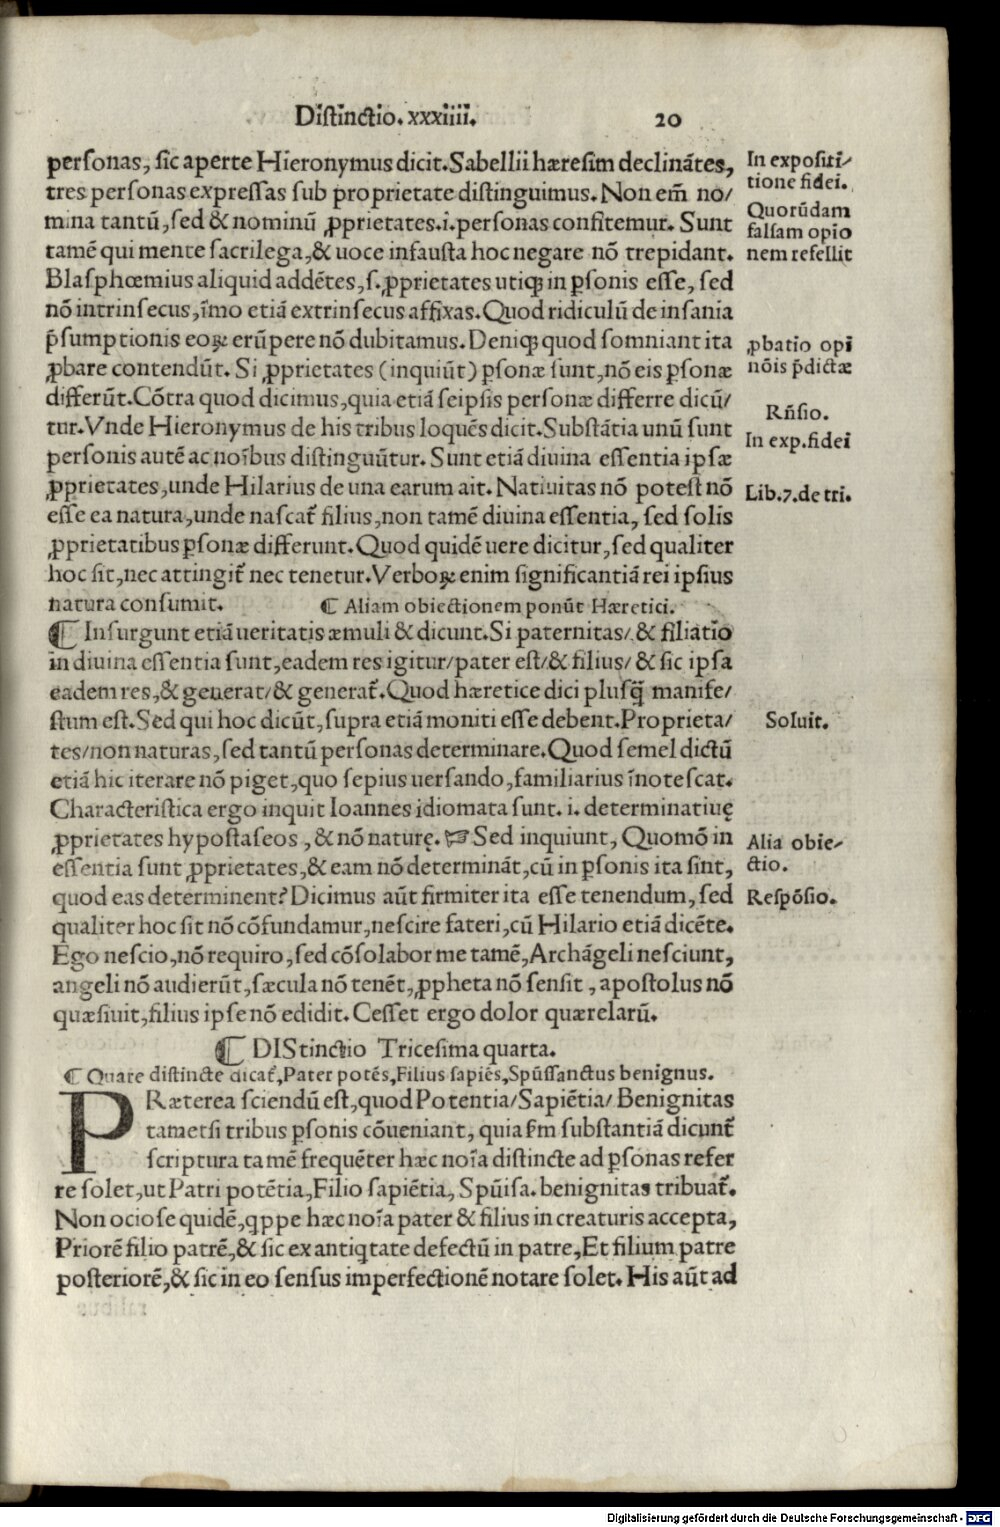 Distinctio. xxxiiii. 20
personas, sic aperte Hieronymus dicit. Sabellii hæresim declinãtes,
tres personas expressas sub proprietate distinguimus. Non em̃ no/
mina tantũ, sed & nominũ ꝓprietates .i. personas confitemur. Sunt
tamẽ qui mente sacrilega, & uoce infausta hoc negare nõ trepidant.
Blasphœmius aliquid addẽtes, s. ꝓprietates utiqꝫ in ꝑsonis esse, sed
nõ intrinsecus, ĩmo etiã extrinsecus affixas. Quod ridiculũ de insania
p̃sumptionis eoꝝ erũpere nõ dubitamus. Deniqꝫ quod somniant ita
ꝓbare contendũt. Si ꝓprietates (inquiũt) ꝑsonæ sunt, nõ eis ꝑsonæ
differũt. Cõtra quod dicimus, quia etiã seipsis personæ differre dicũ/
tur. Vnde Hieronymus de his tribus loquẽs dicit. Substãtia unũ sunt
personis autẽ ac noĩbus distinguũtur. Sunt etiã diuina essentia ipsæ
ꝓprietates, unde Hilarius de una earum ait. Natiuitas nõ potest nõ
esse ea natura, unde nascat᷑ filius, non tamẽ diuina essentia, sed solis
ꝓprietatibus ꝑsonæ differunt. Quod quidẽ uere dicitur, sed qualiter
hoc sit, nec attingit᷑ nec tenetur. Verboꝝ enim significantiã rei ipsius
natura consumit. ¶ Aliam obiectionem ponũt Hæretici.
¶ Insurgunt etiã ueritatis æmuli & dicunt. Si paternitas/ & filiatio
in diuina essentia sunt, eadem res igitur/ pater est/ & filius/ & sic ipsa
eadem res, & generat/ & generat᷑. Quod hæretice dici plusq̃ manife/
stum est. Sed qui hoc dicũt, supra etiã moniti esse debent. Proprieta/
tes/ non naturas, sed tantũ personas determinare. Quod semel dictũ
etiã hic iterare nõ piget, quo sepius uersando, familiarius ĩnotescat.
Characteristica ergo inquit Ioannes idiomata sunt .i. determinatiuę
ꝓprietates hypostaseos, & nõ naturę. ☞ Sed inquiunt, Quomõ in
essentia sunt ꝓprietates, & eam nõ determinãt, cũ in ꝑsonis ita sint,
quod eas determinent? Dicimus aũt firmiter ita esse tenendum, sed
qualiter hoc sit nõ cõfundamur, nescire fateri, cũ Hilario etiã dicẽte.
Ego nescio, nõ requiro, sed cõsolabor me tamẽ, Archãgeli nesciunt,
angeli nõ audierũt, sæcula nõ tenẽt, ꝓpheta nõ sensit, apostolus nõ
quæsiuit, filius ipse nõ edidit. Cesset ergo dolor quærelarũ.
¶ DIStinctio Tricesima quarta.
¶ Quare distincte dicat᷑, Pater potẽs, Filius sapiẽs, Spũssanctus benignus.
PRæterea sciendũ est, quod Potentia/ Sapiẽtia/ Benignitas
tametsi tribus ꝑsonis cõueniant, quia fm̃ substantiã dicunt᷑
scriptura tamẽ frequẽter hæc noĩa distincte ad ꝑsonas refer
re solet, ut Patri potẽtia, Filio sapiẽtia, Spũisa. benignitas tribuat᷑.
Non ociose quidẽ, qppe hæc noĩa pater & filius in creaturis accepta,
Priorẽ filio patrẽ, & sic ex antiqtate defectũ in patre, Et filium patre
posteriorẽ, & sic in eo sensus imperfectionẽ notare solet. His aũt ad
In expositi/
tione fidei.
Quorũdam
falsam opio
nem refellit
ꝓbatio opi
nõis p̃dictæ
Rñsio.
In exp. fidei
Lib. 7. de tri.
Soluit.
Alia obie/
ctio.
Respõsio.
Digitalisierung gefördert durch die Deutsche Forschungsgemeinschaft - DFG